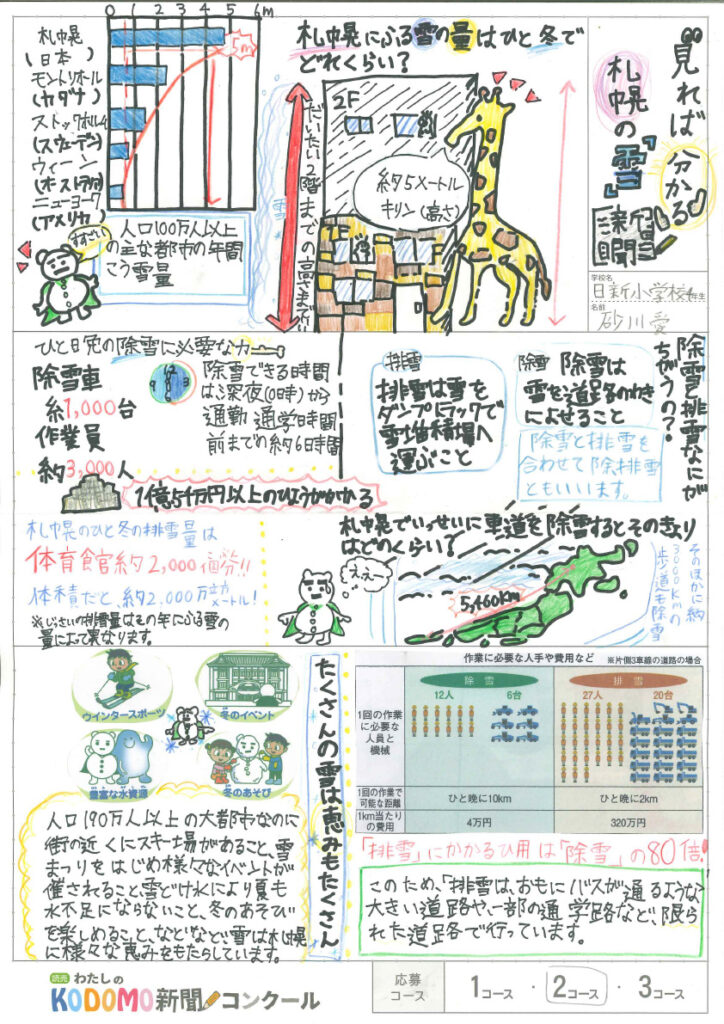 見れば分かる
札幌の雪
新聞
学校名
日新小学校4年生
名前
0 1 2 3 4 5 6m
札幌
(日本)
モントリオール
(カナダ)
ストックホルム
(スウェーデン)
ウィーン
(オーストリア)
ニューヨーク
(アメリカ)
5m
すすごい
人口100万人以上
の主な都市の年間
こう雪量
札幌にふる雪の量はひと冬で
どれくらい?
だいたい2階までの高さまで!!
雪
2F
1F
約5メートル
キリン(高さ)
ひと晩の除雪に必要な力
除雪車
約1,000台
作業員
約3,000人
12
9 3
6
除雪できる時間
は深夜(0時)から
通勤通学時間
前までの約6時間
1億5千万円以上のひようがかかる
除雪と排雪なにが
ちがうの?
除雪
除雪は
雪を道路のわき
によせること
排雪
排雪は雪を
ダンプトラックで
雪堆積場へ
運ぶこと
除雪と排雪を
合わせて除排雪
ともいいます。
札幌のひと冬の排雪量は
体育館約2,000個分!!
体積だと、約2,000万立方メートル!
※じっさいの排雪量はその年にふる雪の
量によって異なります。
札幌でいっせいに車道を除雪するとそのきょり
はどのくらい?
ええー
5,460km
そのほかに約
3000kmの
歩道も除雪
たくさんの雪は恵みもたくさん
ウインタースポーツ
冬のイベント
豊富な水資源
冬のあそび
人口190万人以上の大都市なのに
街の近くにスキー場があること、雪
まつりをはじめ様々なイベントが
催されること、雪どけ水により夏も
水不足にならないこと、冬のあそび
を楽しめること、などなど、雪は札幌
に様々な恵みをもたらしています。
作業に必要な人手や費用など ※片側3車線の道路の場合
除雪 排雪
12人 6台 27人 20台
1回の作業
に必要な
人員と
機械
1回の作業で
可能な距離
ひと晩に10km ひと晩に2km
1km当たり
の費用
4万円 320万円
「排雪」にかかるひ用は「除雪」の80倍!
このため、「排雪は、おもにバスが通るような
大きい道路や、一部の通学路など、限ら
れた道路で行っています。
読売 わたしの
KODOMO新聞コンクール
応募
コース
1コース・2コース・3コース